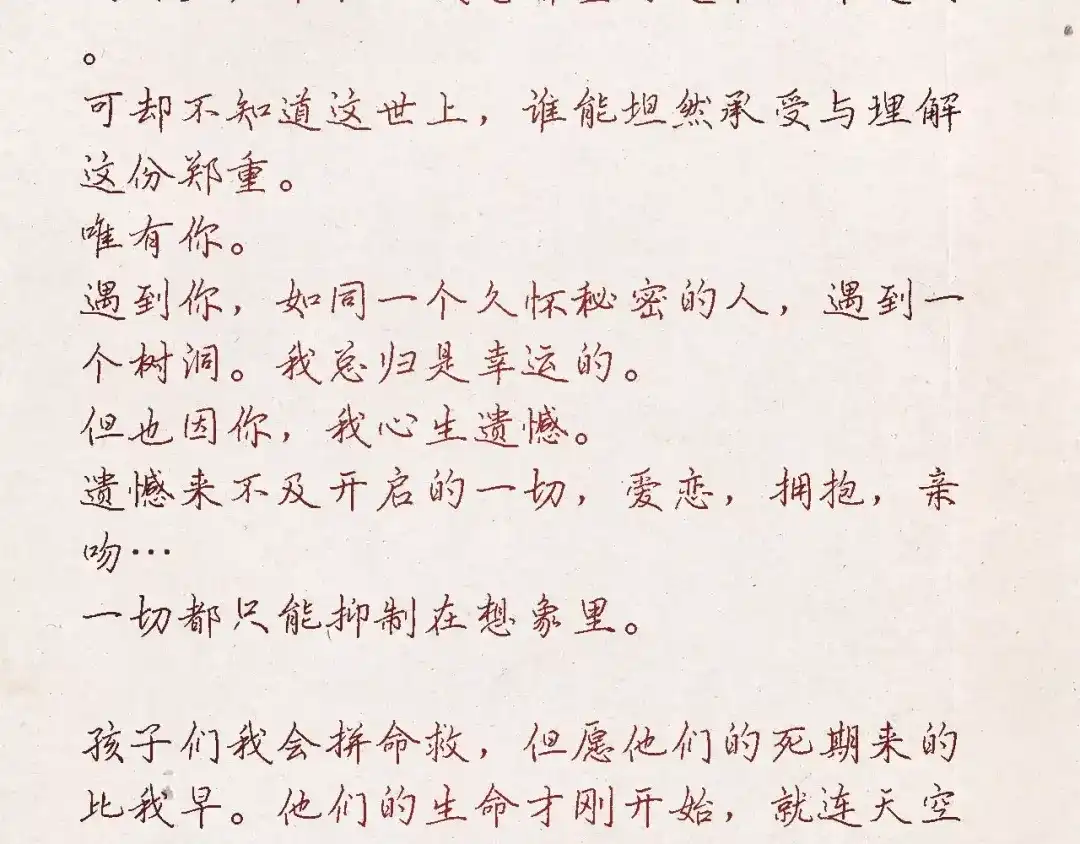 。
可却不知道这世上，谁能坦然承受与理解
这份郑重。
唯有你。
遇到你，如同一个久怀秘密的人，遇到一
个树洞。我总归是幸运的。
但也因你，我心生遗憾。
遗憾来不及开启的一切，爱恋，拥抱，亲
吻…
一切都只能抑制在想象里。
孩子们我会拼命救，但愿他们的死期来的
比我早。他们的生命才刚开始，就连天空